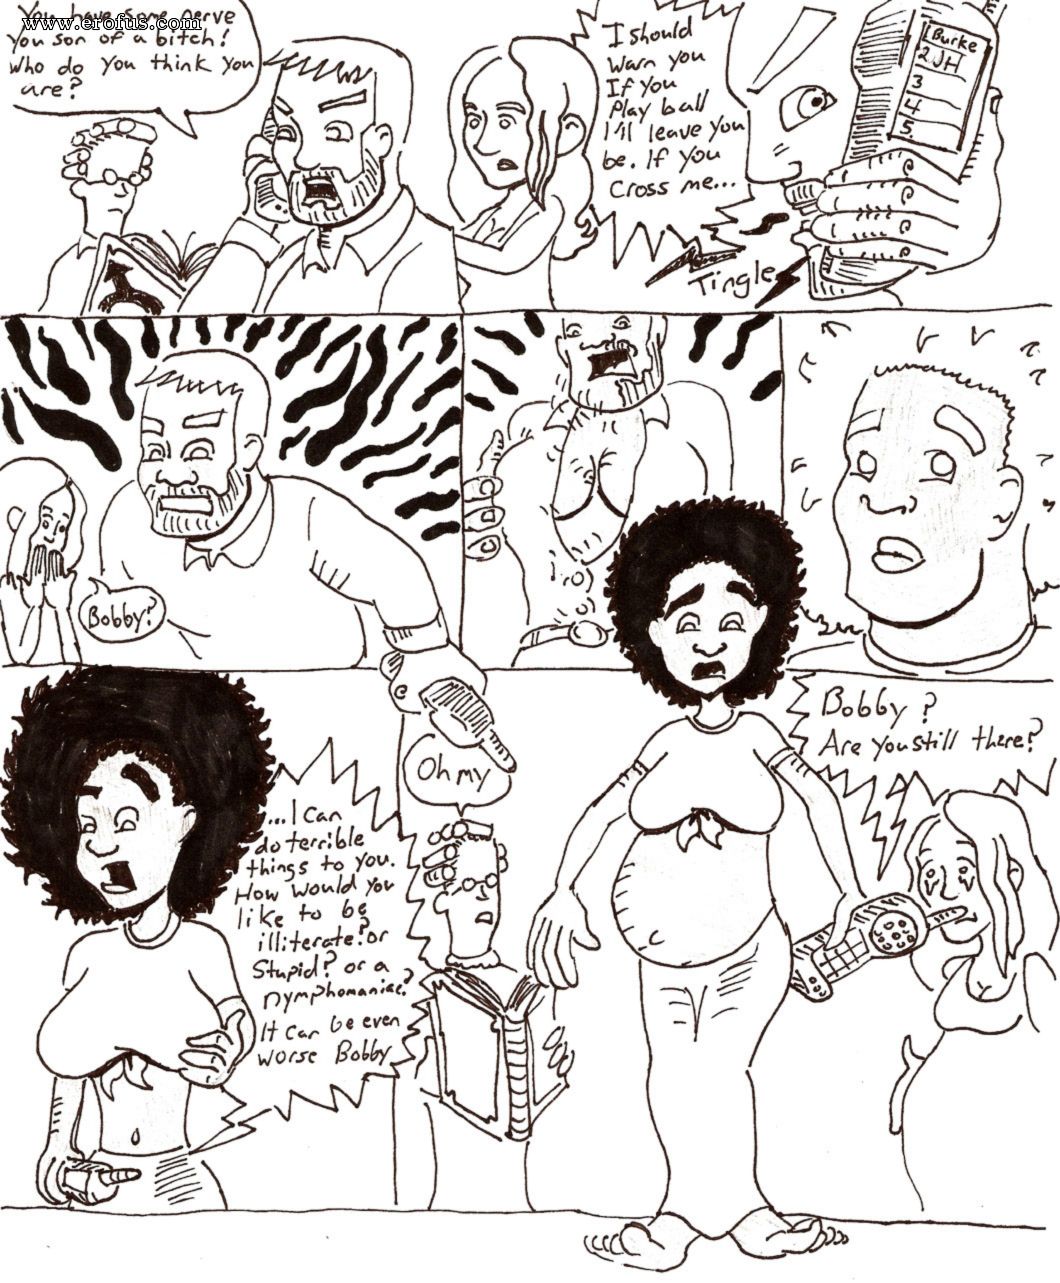 www.erofus.com
You have some nerve
you son of a bitch!
Who do you think you
are?
I should
warn you
If you
Play ball
I'll leave you
be. If you
cross me...
1 Burke
2 JH
3
4
5.
Tingle
Bobby?
...I can
do terrible
things to you.
How would you
like to be
illiterate? or
Stupid? or a
nymphomaniac?
It can be even
worse Bobby
Oh my
Bobby?
Are you still there?